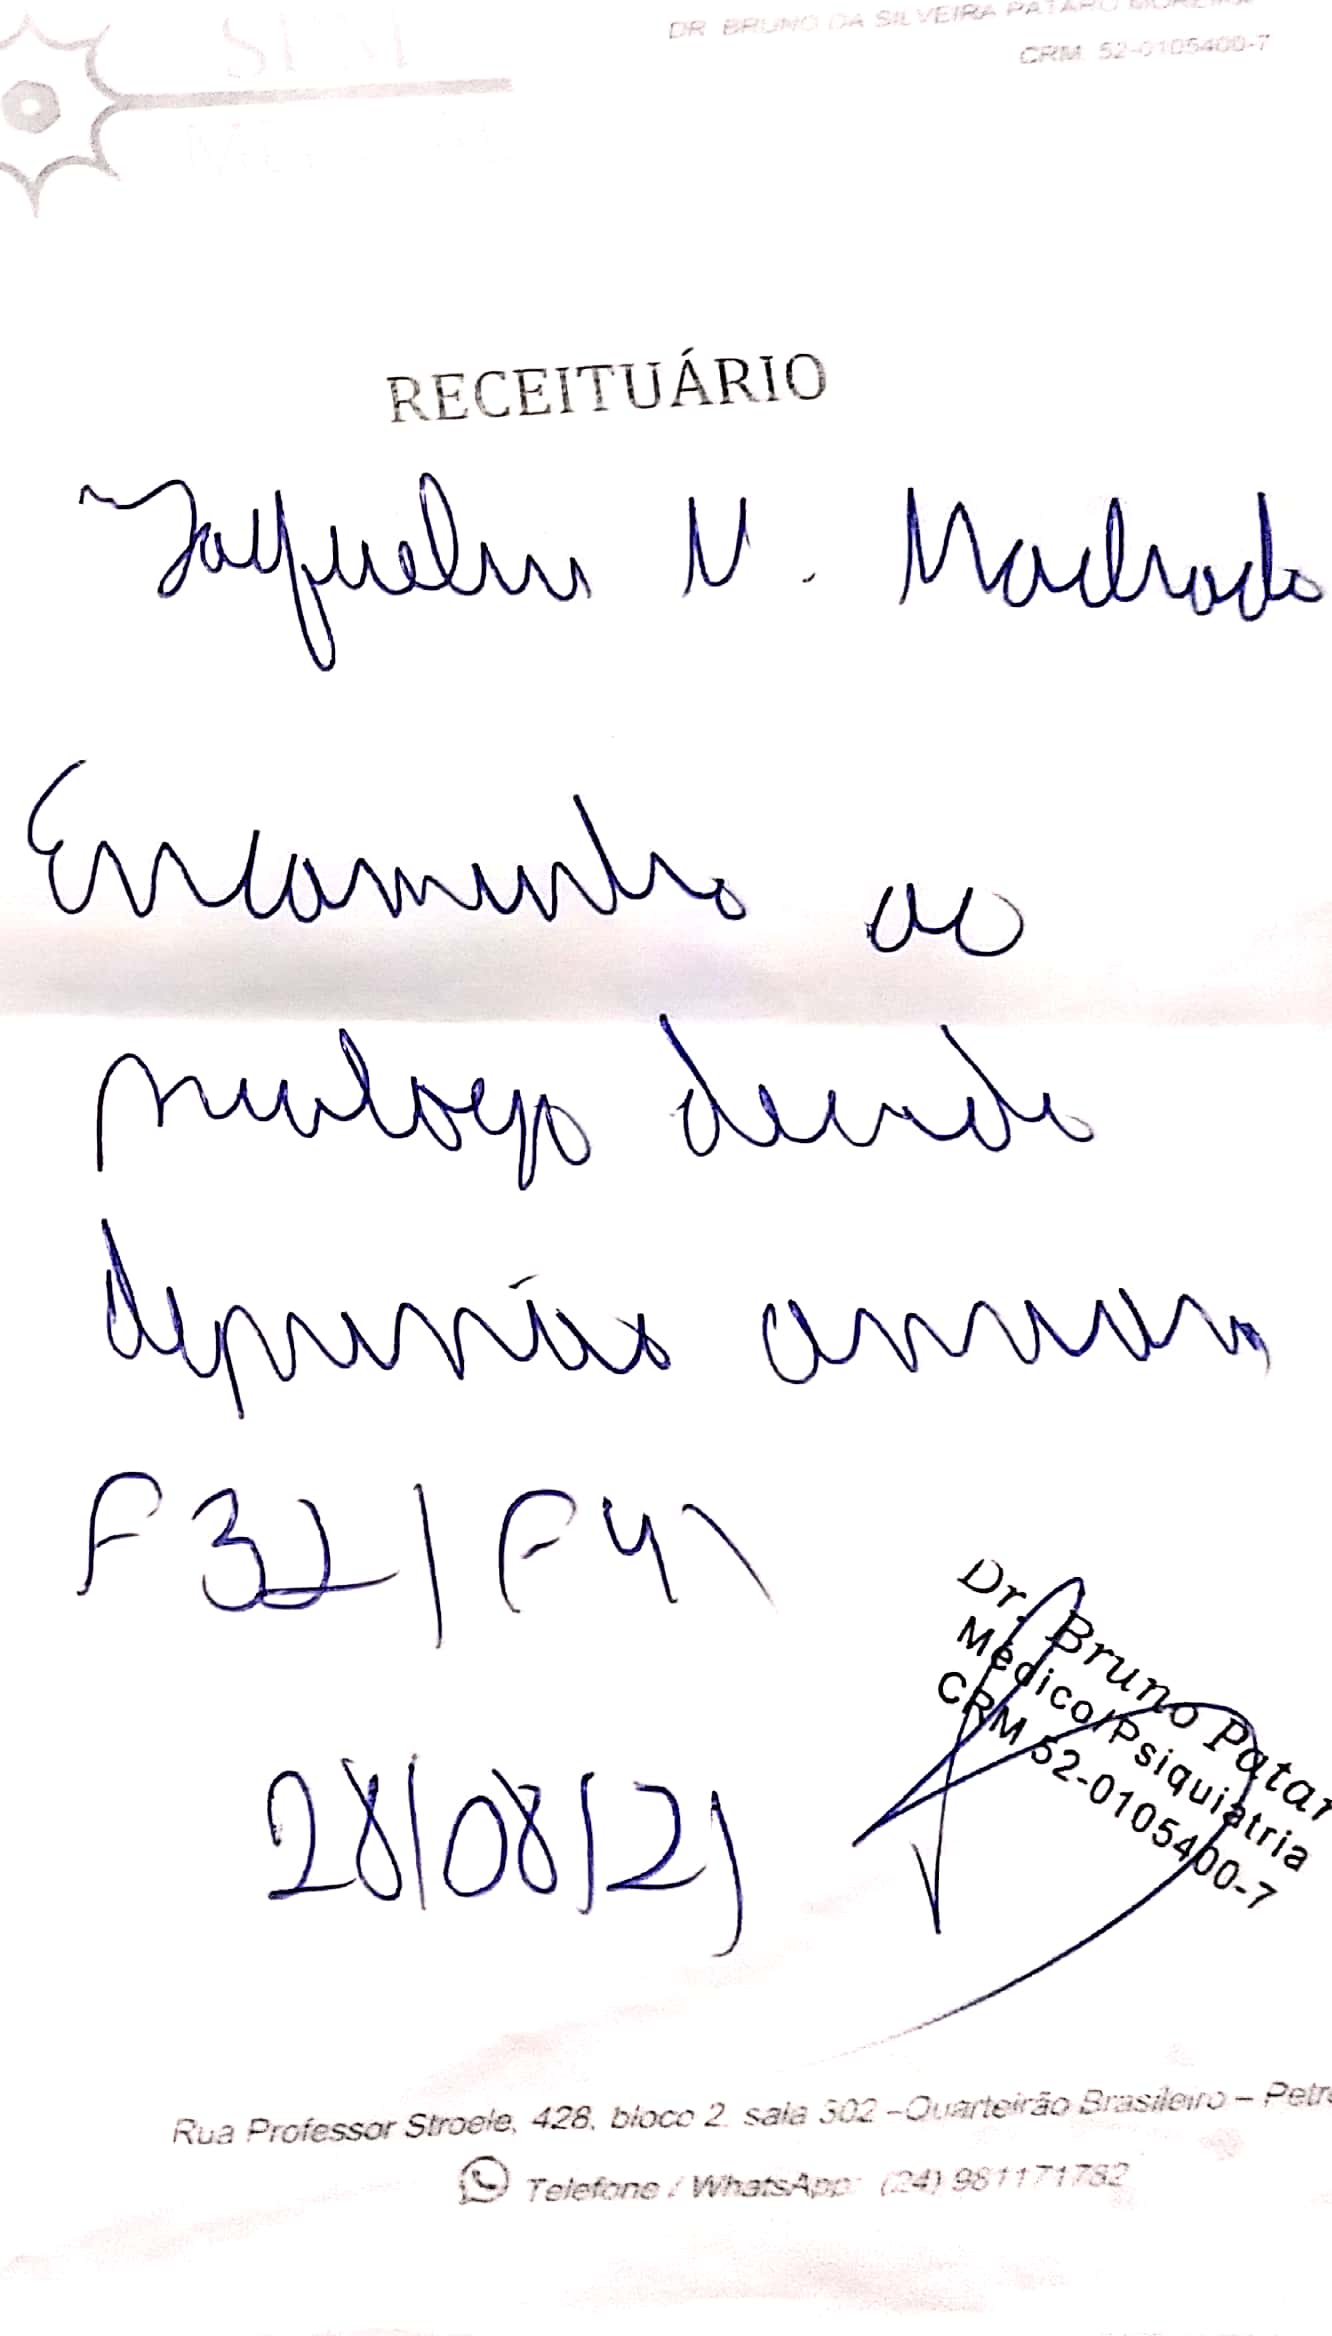 DR BRUNO DA SILVEIRA PATARO MOREIRA
CRM 52-0105400-7
RECEITUÁRIO
Jaqueline N. Machado
Encaminho ao
psicologo devido
depressão ansiosa
F32/F41
28/08/21
Dr. Bruno Patar
Médico/Psiquiatria
CRM 52-0105400-7
Rua Professor Stroele, 428, bloco 2, sala 302 – Quarteirão Brasileiro – Petró
Telefone / WhatsApp: (24) 981171782